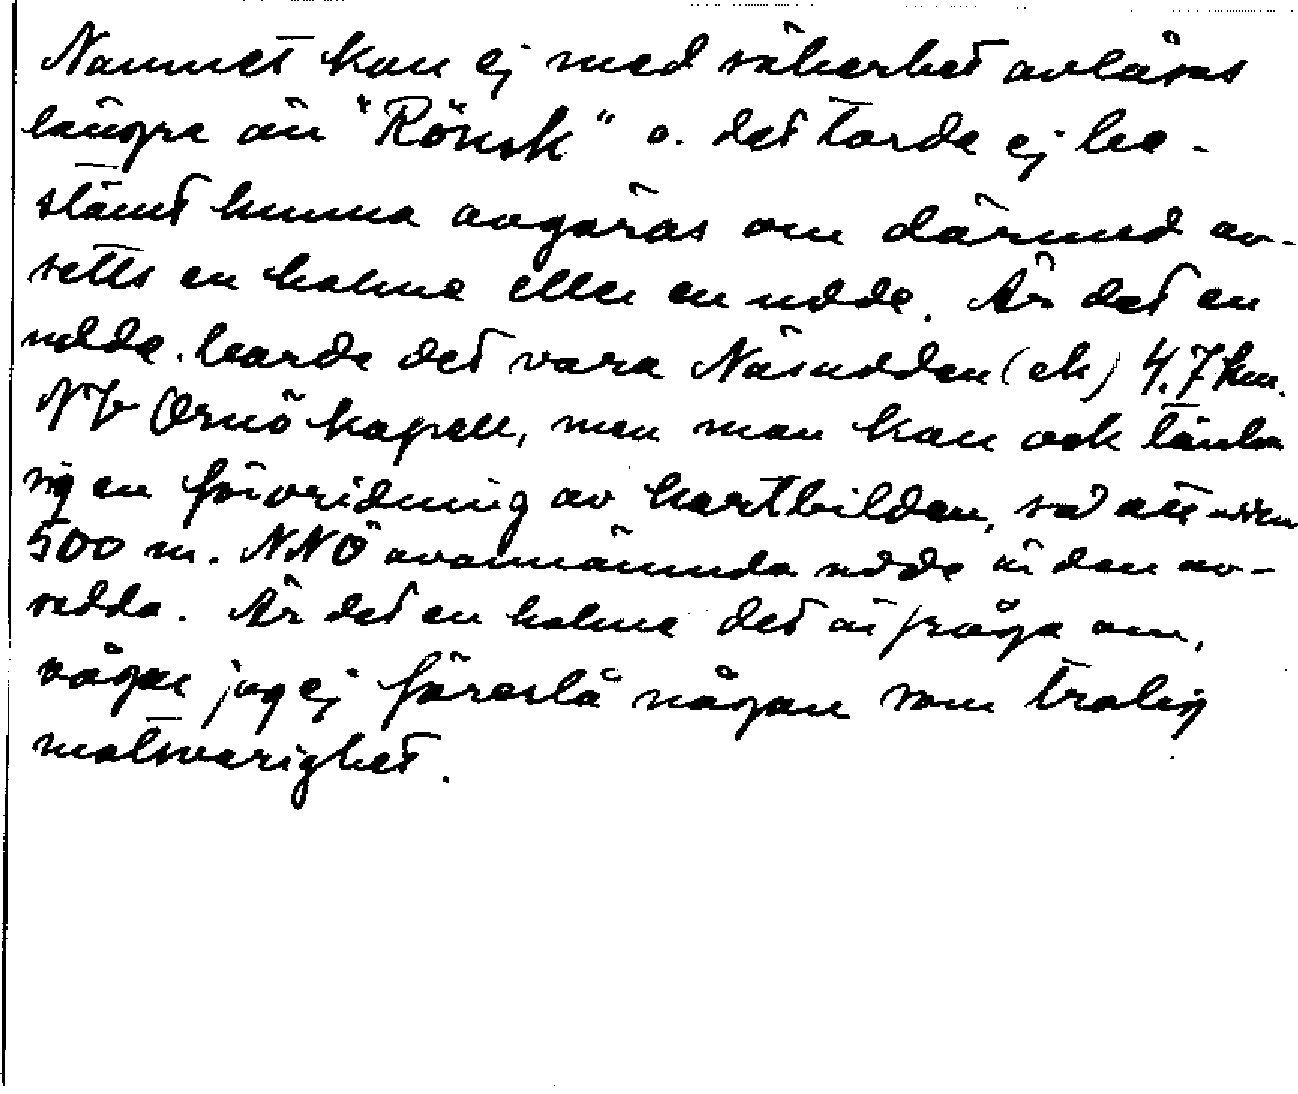 Namnet kan ej med säkerhet avläsas
längre än "Rönsk" o. det torde ej be-
stämt kunna avgöras om därmed av-
setts en holme eller en udde. Är det en
udde, borde det vara Näsudden (ek) 4.7 km.
NV Ornö kapell, men man kan ock tänka
sig en förvridning av kartbilden, så att udden
500 m. NNÖ ovannämnda udde är den av-
sedda. Är det en holme det är fråga om,
vågar jag ej föreslå någon som trolig
motsvarighet.